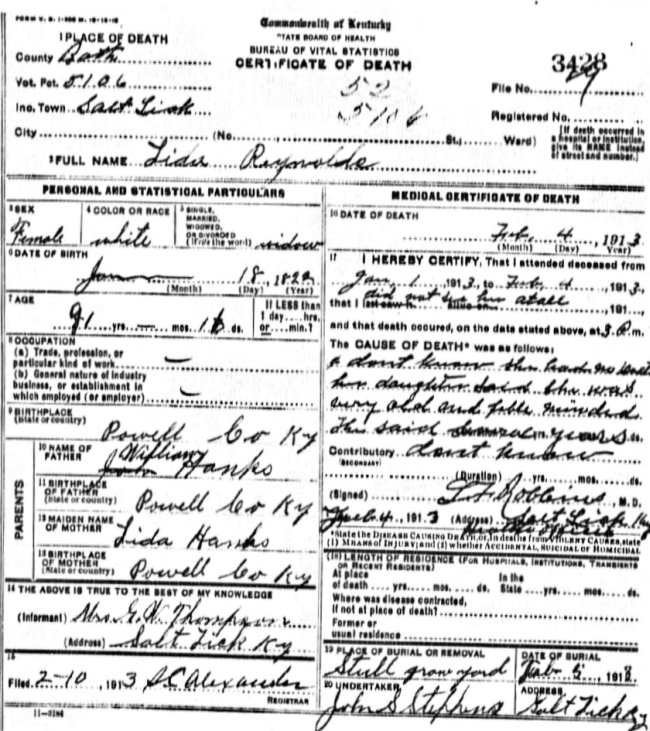 FORM V. S. 1-
Commonwealth of Kentucky
STATE BOARD OF HEALTH
BUREAU OF VITAL STATISTICS
CERTIFICATE OF DEATH
1 PLACE OF DEATH
County Bath
Vot. Pct. 5106
Ino. Town Salt Lick
City (No. St.; Ward)
52
5106
3428
File No.
Registered No.
(If death occurred in a hospital or institution, give its NAME instead of street and number.)
2 FULL NAME Lida Reynolds
PERSONAL AND STATISTICAL PARTICULARS
3 SEX Female
4 COLOR OR RACE white
5 SINGLE, MARRIED, WIDOWED, OR DIVORCED (Write the word) widow
6 DATE OF BIRTH
Jan 18, 1822
(Month) (Day) (Year)
7 AGE
91 yrs. — mos. 16 ds.
If LESS than 1 day....hrs. or....min.?
8 OCCUPATION
(a) Trade, profession, or particular kind of work —
(b) General nature of industry business, or establishment in which employed (or employer) —
9 BIRTHPLACE
(State or country) Powell Co Ky
PARENTS
10 NAME OF FATHER William Hanks
11 BIRTHPLACE OF FATHER
(State or country) Powell Co Ky
12 MAIDEN NAME OF MOTHER Lida Hanks
13 BIRTHPLACE OF MOTHER
(State or country) Powell Co Ky
14 THE ABOVE IS TRUE TO THE BEST OF MY KNOWLEDGE
(Informant) Mrs. G. W. Thompson
(Address) Salt Lick Ky
15
Filed 2-10, 1913 S C Alexander
REGISTRAR
11-3184
MEDICAL CERTIFICATE OF DEATH
16 DATE OF DEATH
Feb. 4, 1913
(Month) (Day) (Year)
17 I HEREBY CERTIFY, That I attended deceased from
Jan 1, 1913, to Feb 4, 1913,
that I last saw h alive on , 191
did not see her at all
and that death occured, on the date stated above, at 3 P.m.
The CAUSE OF DEATH* was as follows:
I dont know She had no Doctor
her daughter said she was
very old and feble minded
She said years
Contributory dont know
(SECONDARY)
(Duration) yrs. mos. ds.
(Signed) Robbins, M.D.
Feb 4, 1913 (Address) Salt Lick Ky
*State the DISEASE CAUSING DEATH, or, in deaths from VIOLENT CAUSES, state (1) MEANS OF INJURY; and (2) whether ACCIDENTAL, SUICIDAL OR HOMICIDAL
(18) LENGTH OF RESIDENCE (FOR HOSPITALS, INSTITUTIONS, TRANSIENTS OR RECENT RESIDENTS)
At place of death yrs. mos. ds.
In the State yrs. mos. ds.
Where was disease contracted, if not at place of death?
Former or usual residence
19 PLACE OF BURIAL OR REMOVAL
Stull grave yard
DATE OF BURIAL
Feb 5, 1913
20 UNDERTAKER
John S Stephens
ADDRESS
Salt Lick Ky